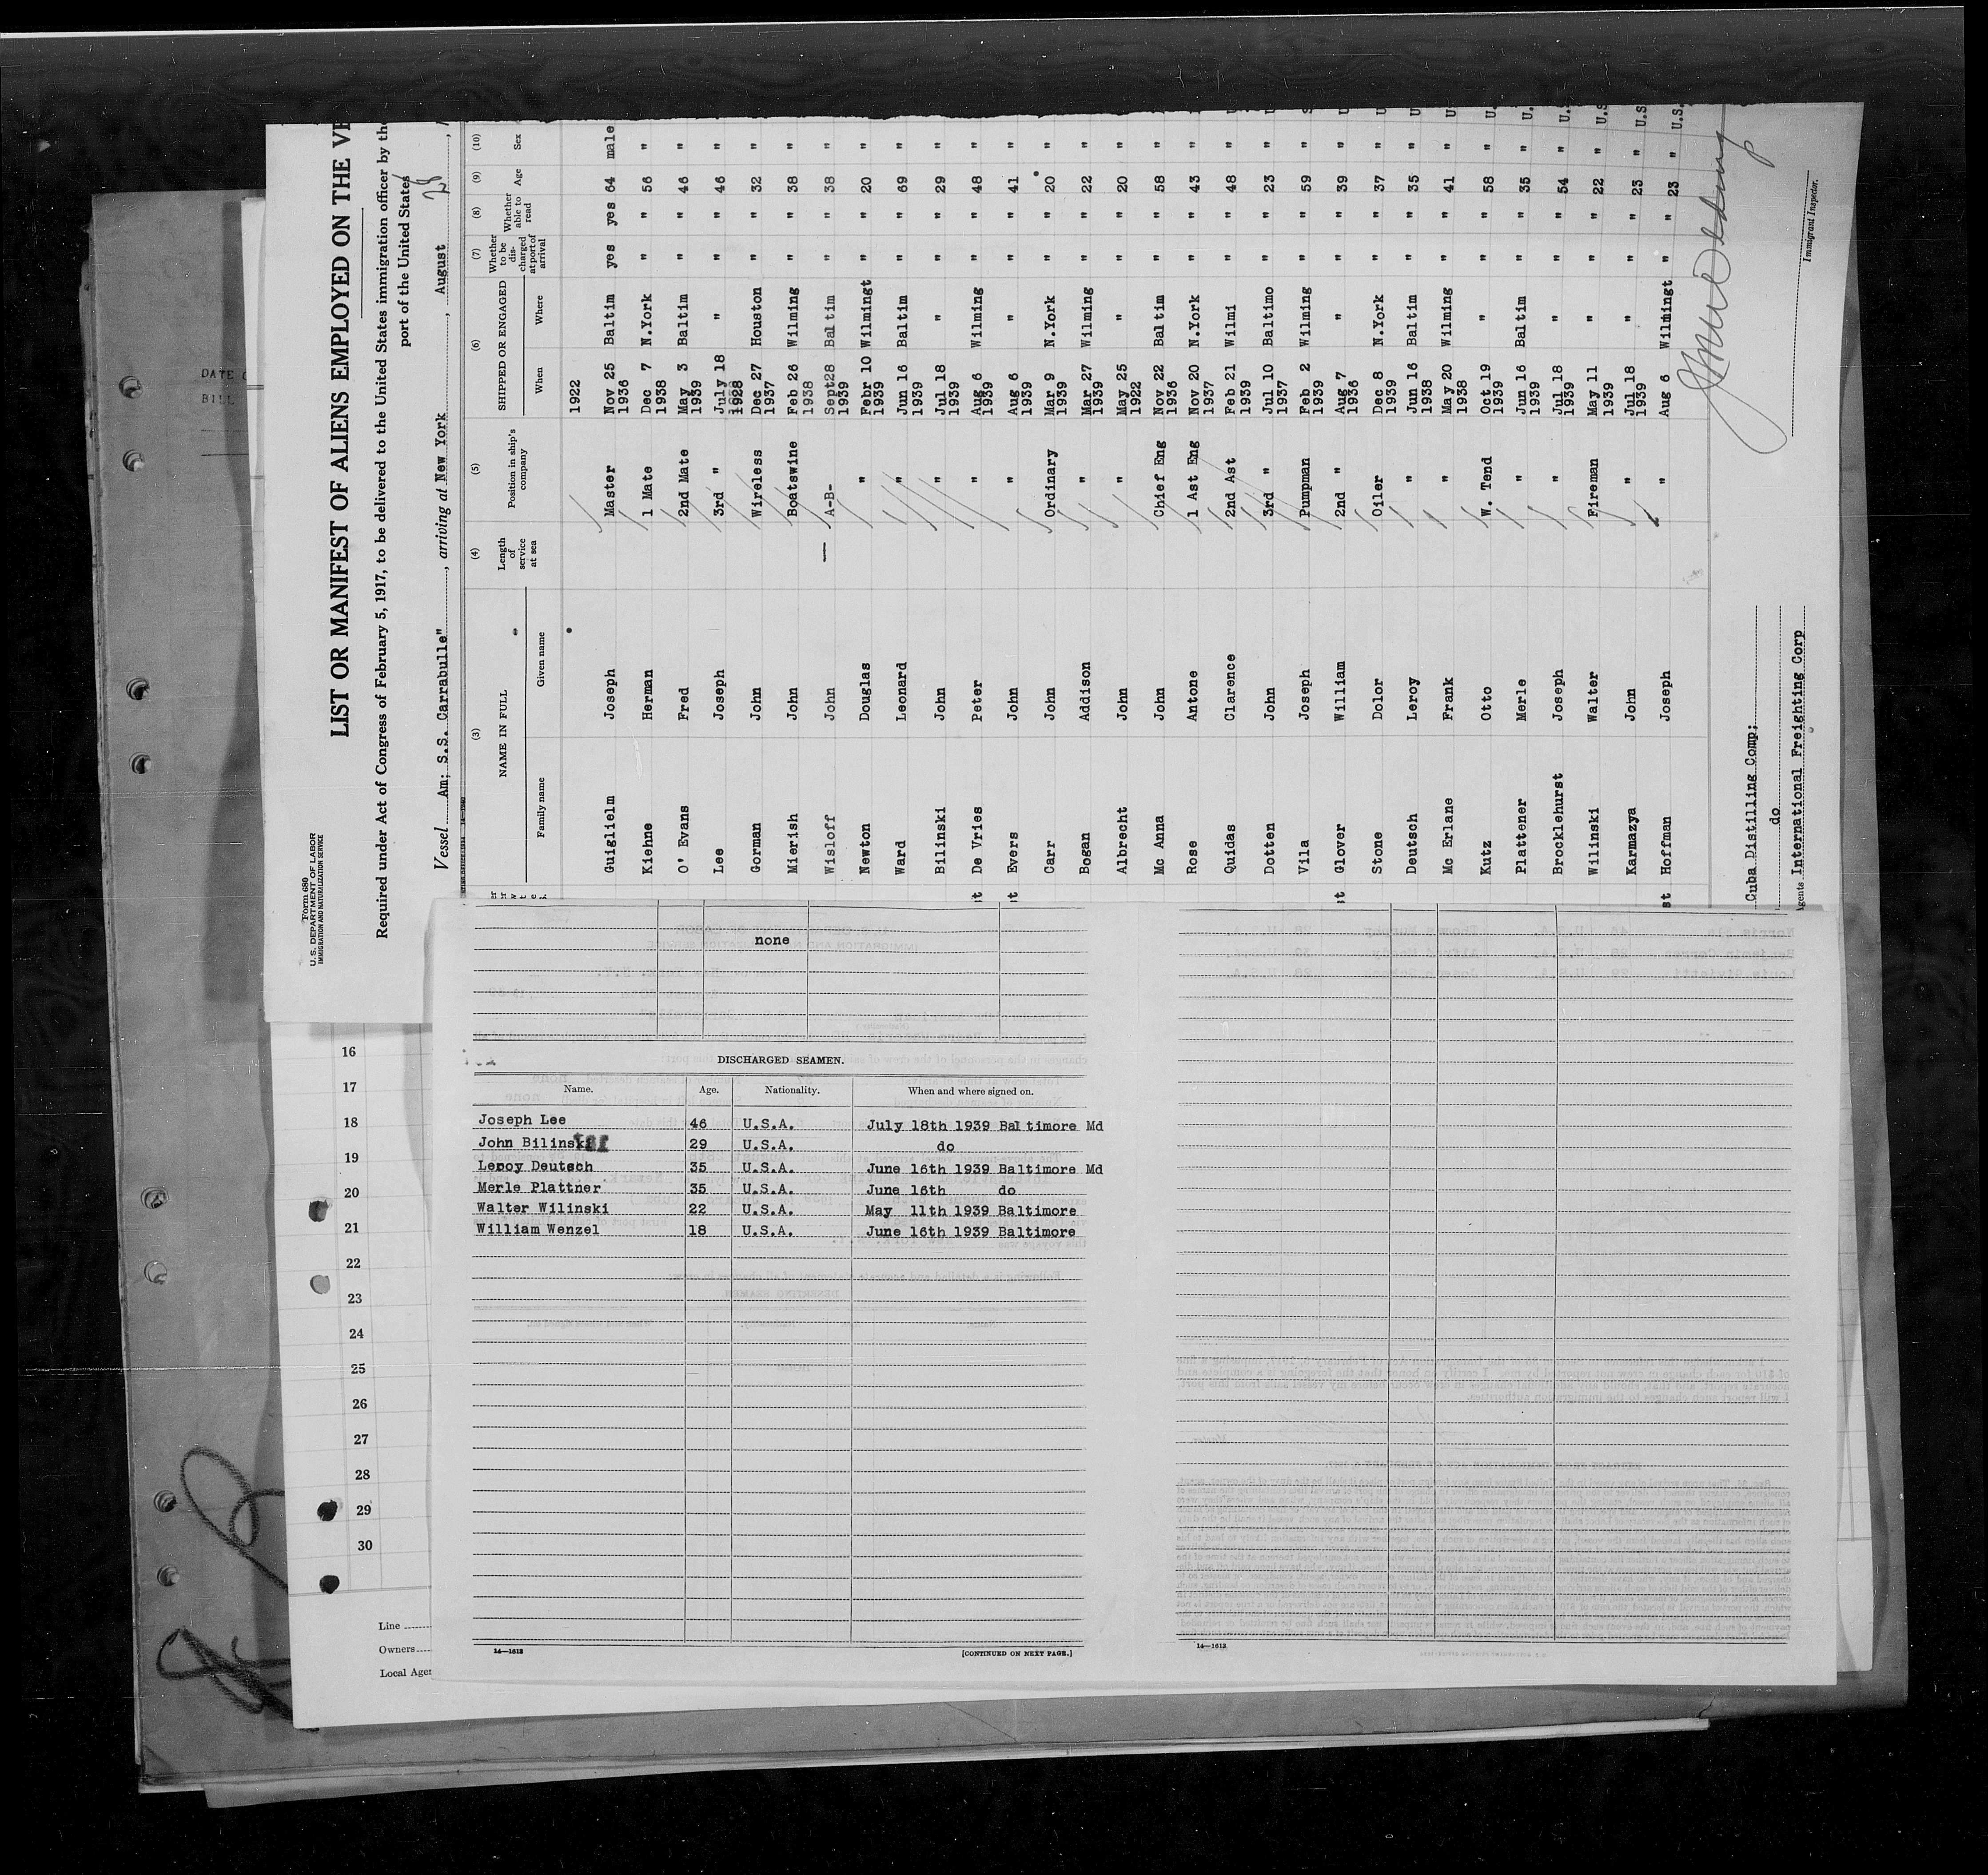 Form 680
U. S. DEPARTMENT OF LABOR
IMMIGRATION AND NATURALIZATION SERVICE
LIST OR MANIFEST OF ALIENS EMPLOYED ON THE VE
Required under Act of Congress of February 5, 1917, to be delivered to the United States immigration officer by the
port of the United States
Vessel Am; S.S. Carrabulle", arriving at New York, August 28
(3) (4) (5) (6) (7) (8) (9) (10)
NAME IN FULL
Family name Given name
Length of service at sea
Position in ship's company
SHIPPED OR ENGAGED
When Where
Whether to be discharged at port of arrival
Whether able to read
Age
Sex
1922
Guiglielm Joseph Master Nov 25 Baltim yes yes 64 male
1936
Kiehne Herman 1 Mate Dec 7 N.York " " 56 "
1938
O' Evans Fred 2nd Mate May 3 Baltim " " 46 "
1939
Lee Joseph 3rd " July 18 " " " 46 "
1928
Gorman John Wireless Dec 27 Houston " " 32 "
1937
Mierish John Boatswine Feb 26 Wilming " " 38 "
1938
Wisloff John — A-B- Sept28 Baltim " " 38 "
1939
Newton Douglas " Febr 10 Wilmingt " " 20 "
1939
Ward Leonard " Jun 16 Baltim " " 69 "
1939
Bilinski John " Jul 18 " " " 29 "
1939
t De Vries Peter " Aug 6 Wilming " " 48 "
1939
t Evers John " Aug 6 " " " 41 "
1939
Carr John Ordinary Mar 9 N.York " " 20 "
1939
Bogan Addison " Mar 27 Wilming " " 22 "
1939
Albrecht John " May 25 " " " 20 "
1922
Mc Anna John Chief Eng Nov 22 Baltim " " 58 "
1936
Rose Antone 1 Ast Eng Nov 20 N.York " " 43 "
1937
Quidas Clarence 2nd Ast Feb 21 Wilmi " " 48 "
1939
Dotten John 3rd " Jul 10 Baltimo " " 23 "
1937
Vila Joseph Pumpman Feb 2 Wilming " " 59 "
1939
st Glover William 2nd " Aug 7 " " " 39 "
1936
Stone Dolor Oiler Dec 8 N.York " " 37 "
1939
Deutsch Leroy " Jun 16 Baltim " " 35 "
1938
Mc Erlane Frank " May 20 Wilming " " 41 "
1938
Kutz Otto W. Tend Oct 19 " " " 58 " U.
1939
Plattener Merle " Jun 16 Baltim " " 35 " U.
1939
Brocklehurst Joseph " Jul 18 " " " 54 " U.S
1939
Wilinski Walter Fireman May 11 " " " 22 " U.S
1939
Karmazya John " Jul 18 " " " 23 " U.S
1939
st Hoffman Joseph " Aug 6 Wilmingt " " 23 " U.S.
Cuba Distilling Comp;
do
Agents International Freighting Corp
Immigrant Inspector.
DATE
BILL
none
DISCHARGED SEAMEN.
Name. Age. Nationality. When and where signed on.
Joseph Lee 46 U.S.A. July 18th 1939 Baltimore Md
John Bilinski 29 U.S.A. do
Leroy Deutsch 35 U.S.A. June 16th 1939 Baltimore Md
Merle Plattner 35 U.S.A. June 16th do
Walter Wilinski 22 U.S.A. May 11th 1939 Baltimore
William Wenzel 18 U.S.A. June 16th 1939 Baltimore
14—1613
[CONTINUED ON NEXT PAGE.]
14—1613
16
17
18
19
20
21
22
23
24
25
26
27
28
29
30
Line
Owners
Local Agen